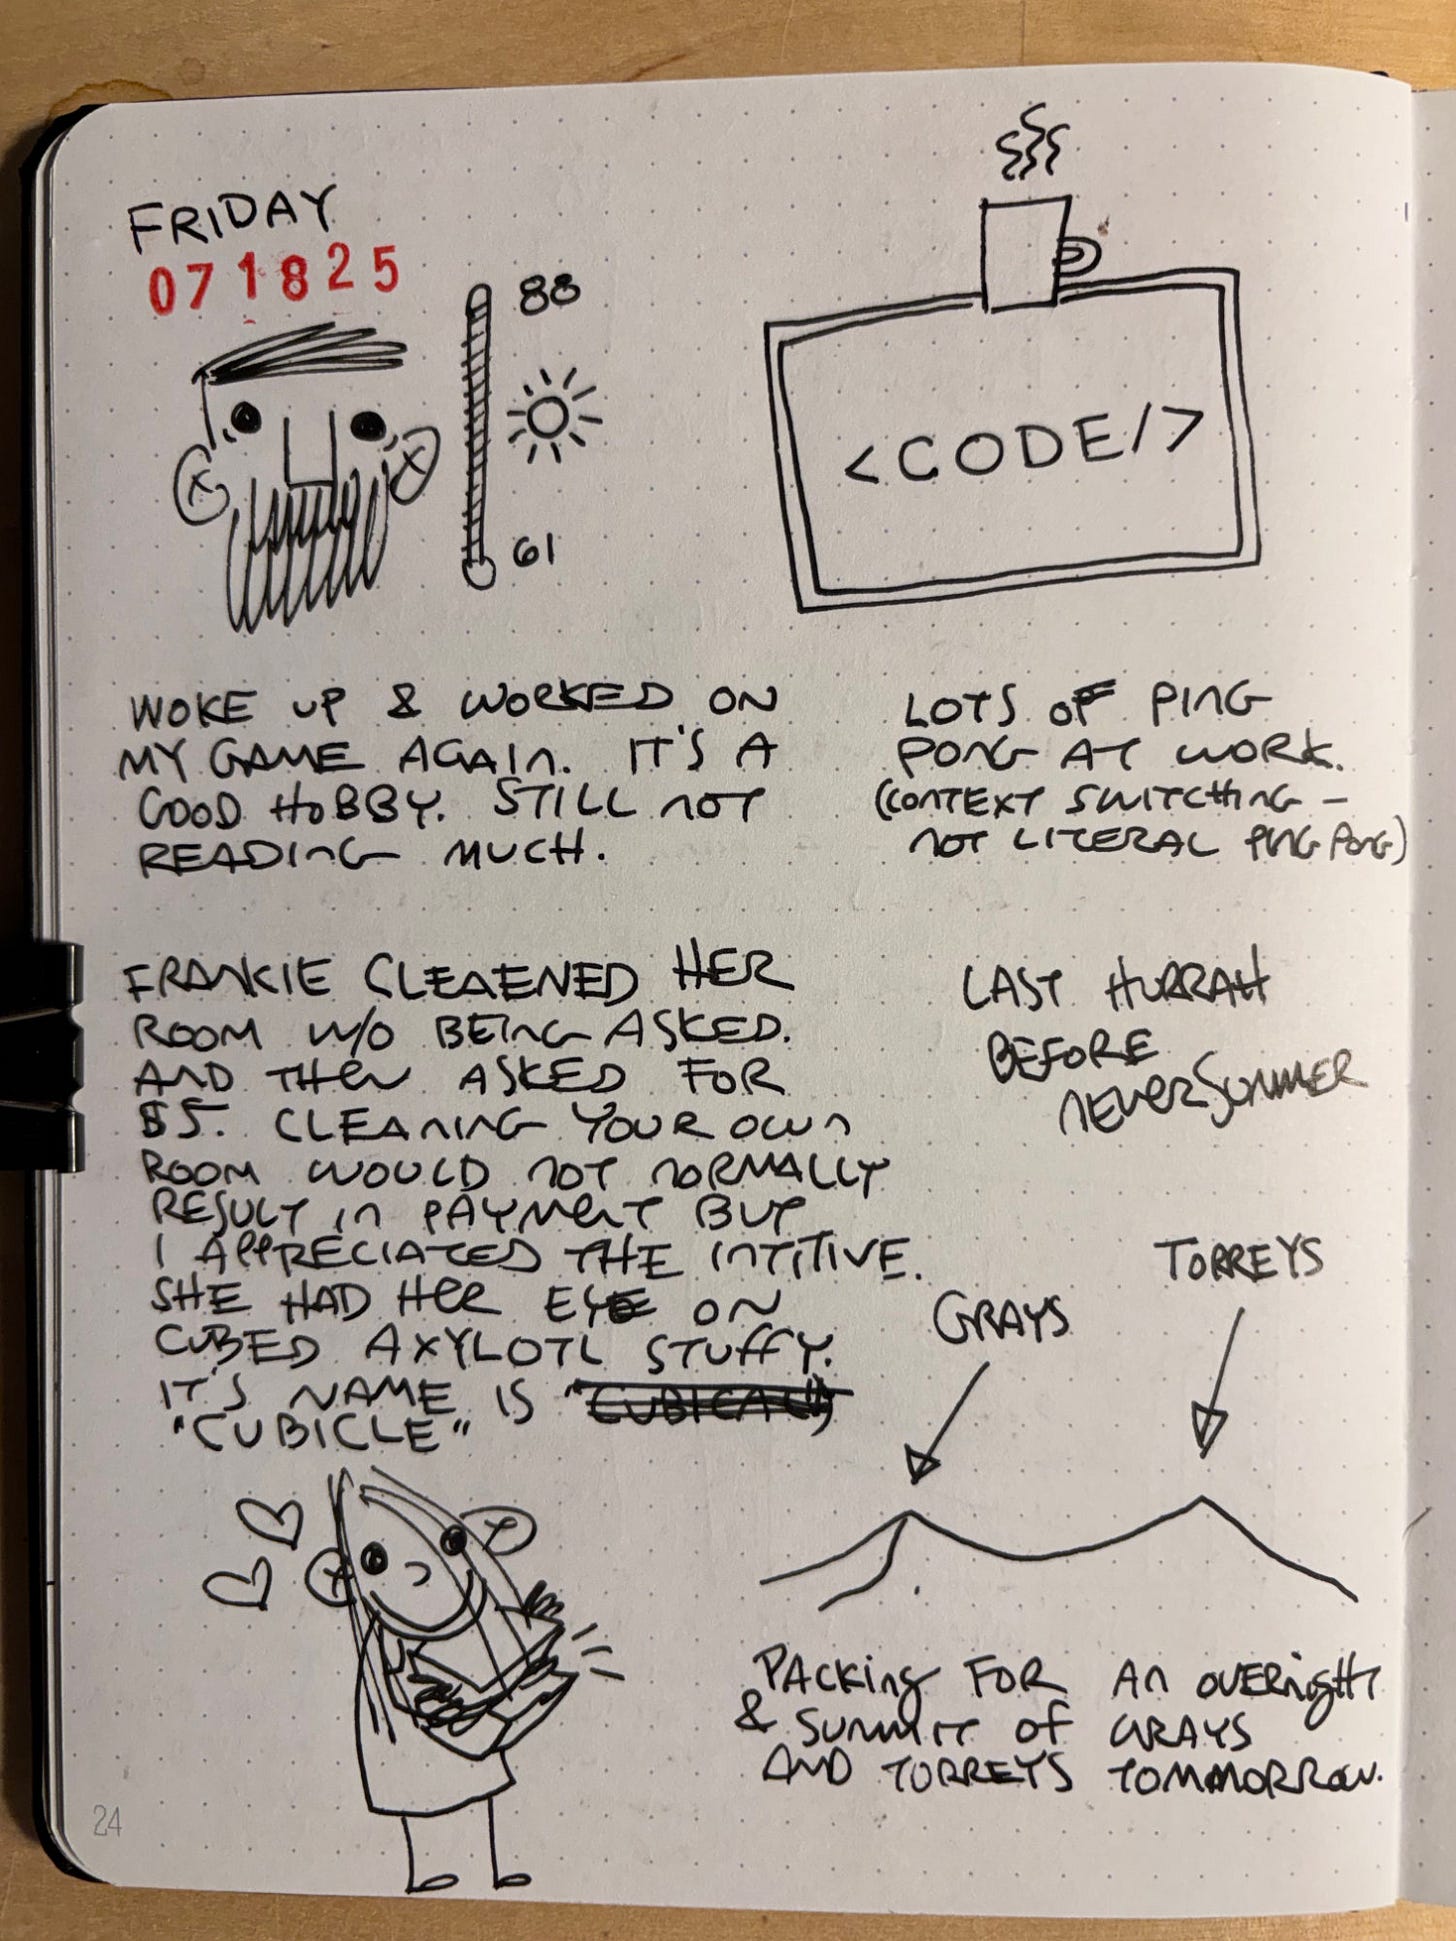 FRIDAY
071825
88
61
<CODE/>
WOKE UP & WORKED ON
MY GAME AGAIN. IT'S A
GOOD HOBBY. STILL NOT
READING MUCH.
LOTS OF PING
PONG AT WORK.
(CONTEXT SWITCHING -
NOT LITERAL PING PONG)
FRANKIE CLEAENED HER
ROOM W/O BEING ASKED.
AND THEN ASKED FOR
$5. CLEANING YOUR OWN
ROOM WOULD NOT NORMALLY
RESULT IN PAYMENT BUT
I APPRECIATED THE INTITIVE.
SHE HAD HER EYE ON
CUBED AXYLOTL STUFFY.
IT'S NAME IS
"CUBICLE"
LAST HURRAH
BEFORE
NEVER SUMMER
GRAYS
TORREYS
PACKING FOR AN OVERNIGHT
& SUMMIT OF GRAYS
AND TORREYS TOMMORROW.
24